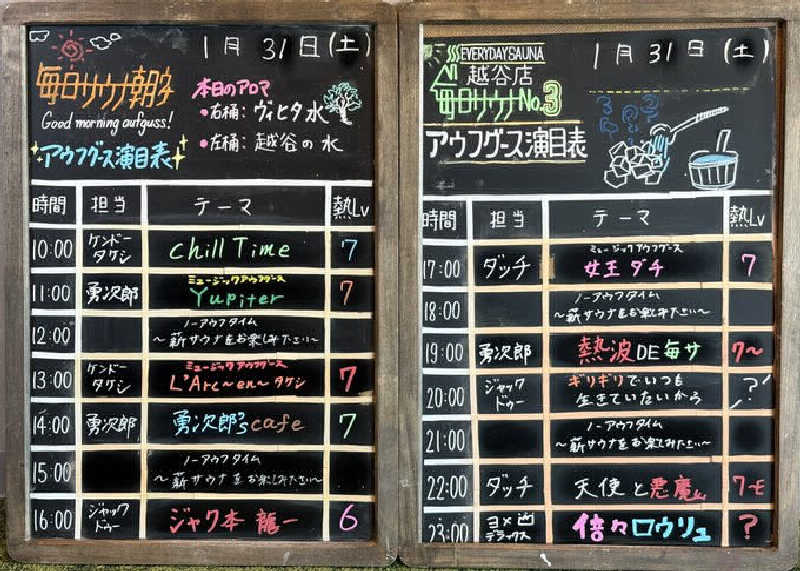 1月 31日(土)
毎日サウナ朝夕
Good morning aufguss!
アウフグース演目表
本日のアロマ
・右桶: ヴィヒタ水
・左桶: 越谷の水
時間 担当 テーマ 熱Lv
10:00 ケンドータケシ chill Time 7
11:00 勇次郎 ミュージックアウフグース Yupiter 7
12:00 ノーアウフタイム
〜薪サウナをお楽しみ下さい〜
13:00 ケンドータケシ ミュージックアウフグース L'Arc~en~タケシ 7
14:00 勇次郎 勇次郎's cafe 7
15:00 ノーアウフタイム
〜薪サウナをお楽しみ下さい〜
16:00 ジャックドゥー ジャク本 龍一 6
1月 31日 (土)
EVERYDAY SAUNA
越谷店
毎日サウナ No.3
アウフグース演目表
時間 担当 テーマ 熱Lv
17:00 ダッチ ミュージックアウフグース 女王ダチ 7
18:00 ノーアウフタイム
〜薪サウナをお楽しみ下さい〜
19:00 勇次郎 熱波DE毎サ 7〜
20:00 ジャックドゥー ギリギリでいつも生きていたいから ?
21:00 ノーアウフタイム
〜薪サウナをお楽しみ下さい〜
22:00 ダッチ 天使と悪魔 7モ
23:00 ヨメ凶デラックス 倍々ロウリュ ?